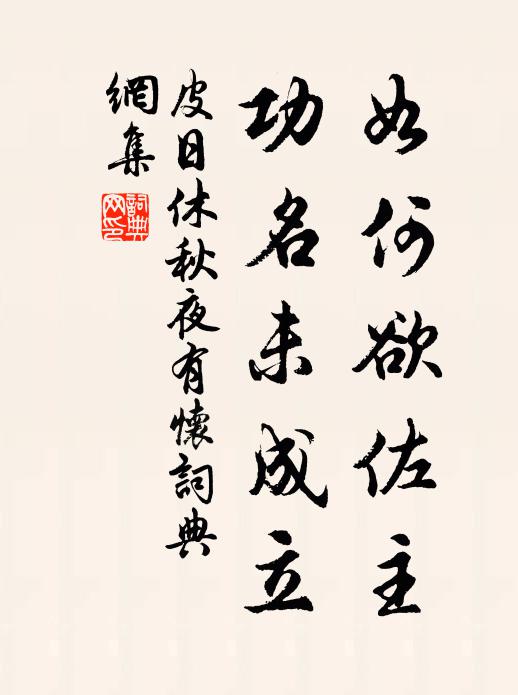 如何欲佐主
功名未成立
皮日休秋夜有懷詞典
網集
詞典
网印